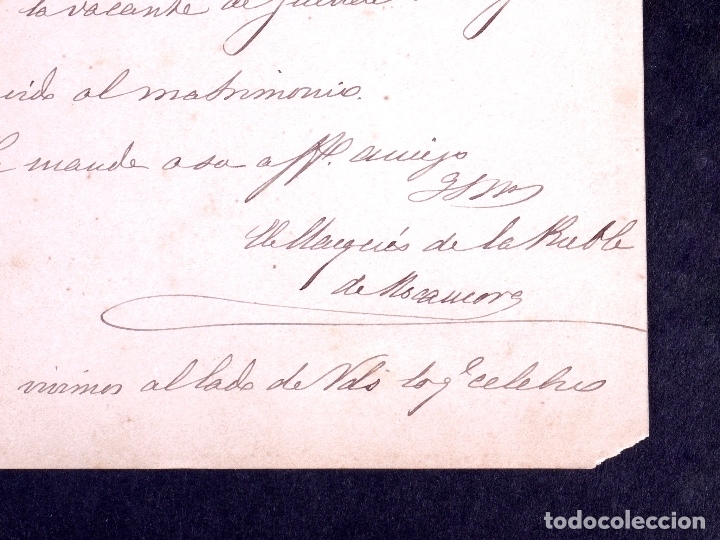 la vacante de
al matrimonio.
mande a su aff.º amigo
El Marqués de la Puebla
de Rocamora
vivimos al lado de Vds lo q.e celebro
todocoleccion